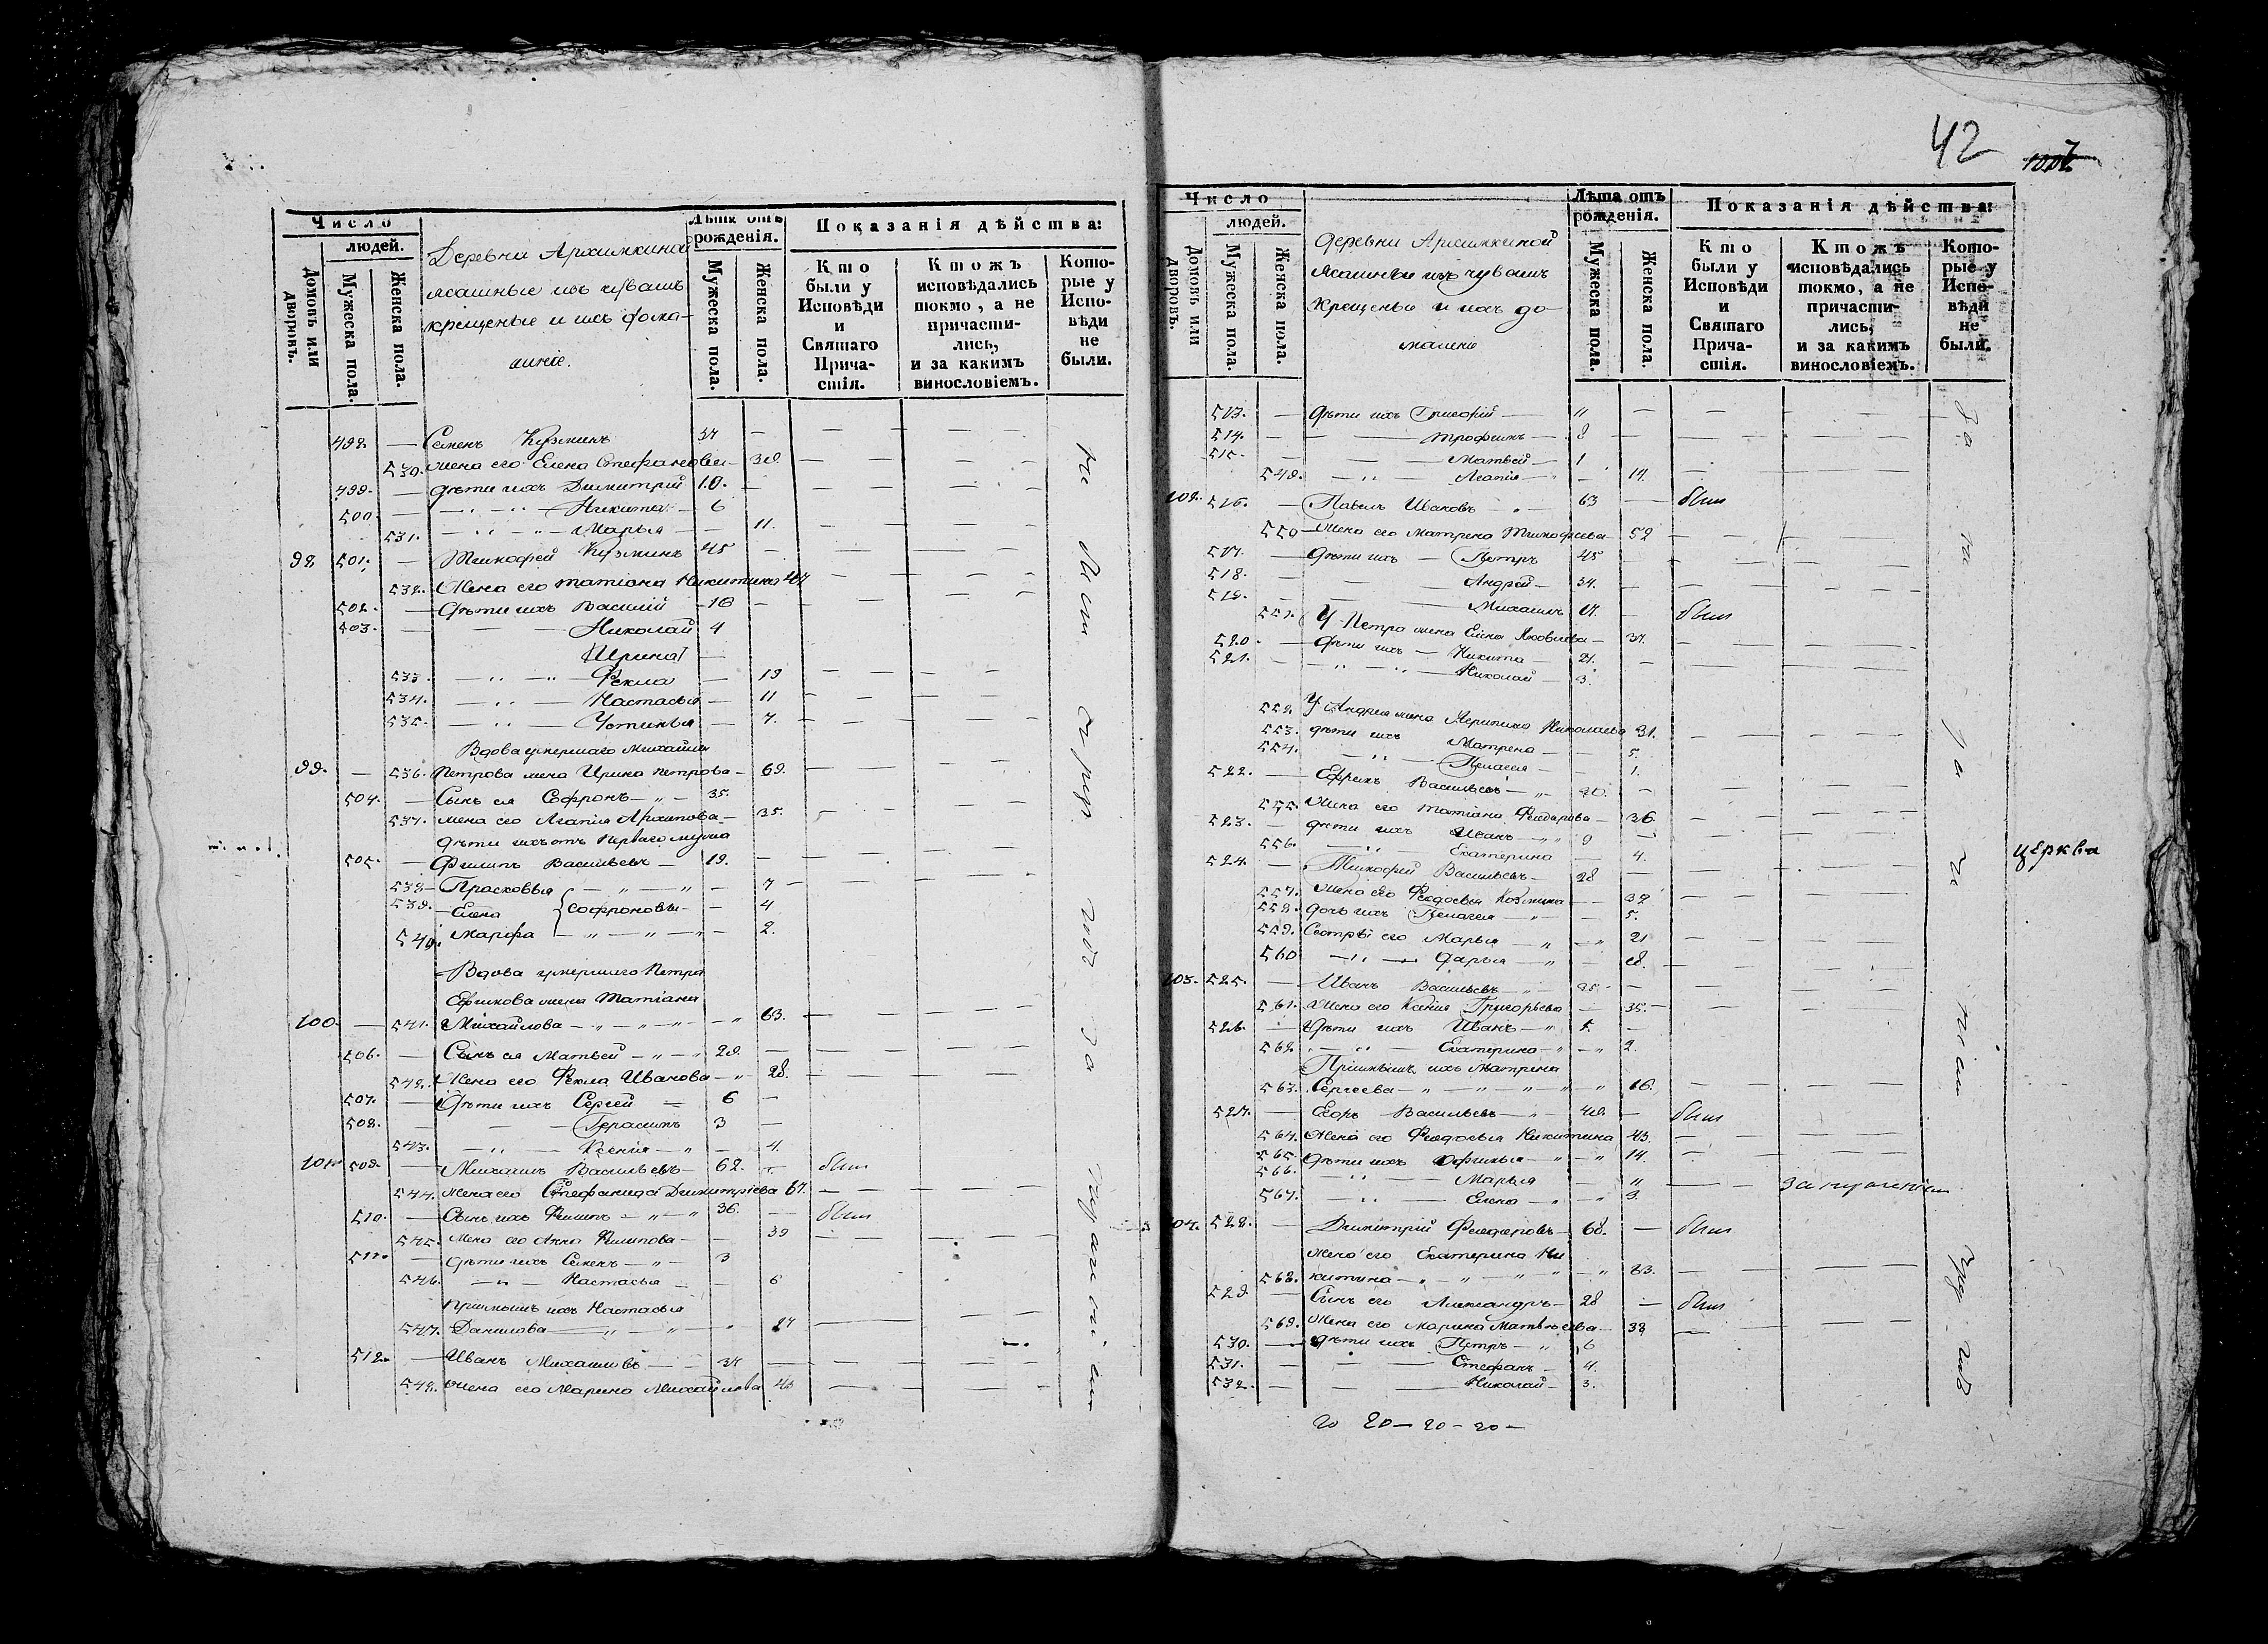 Число
людей.
Домовъ или дворовъ.
Мужеска пола.
Женска пола.
Деревни Архимкиной
ясашные изъ чувашъ
крещеные и ихъ дома-
шніе.
Лѣта отъ рожденія.
Мужеска пола.
Женска пола.
Показанія дѣйства:
Кто были у Исповѣди и Святаго Прича-
стія.
Ктожъ исповѣдались токмо, а не причасти-
лись, и за какимъ винословіемъ.
Кото-
рые у Испо-
вѣди не были.
498. — Семенъ Кузминъ 37 —
530. жена его Елена Стефанова — 38.
499. — дѣти ихъ Димитрій 10. —
500. — Никита — 6
531. — Марья — 11.
98 501. — Тимофей Кузминъ 45 —
532. Жена его Татіана Никитина 47
502. — Дѣти ихъ Василій — 16 —
503. — Николай 4
Ирина
533. — Фекла — 19
534. — Настасья — 11
535. — Устинья — 7.
Вдова умершаго Михаила
99. — 536. Петрова жена Ирина Петрова — 69.
504. — Сынъ ея Софронъ — 35.
537. жена его Агапія Архипова — 35.
дѣти ихъ отъ перваго мужа
505. — Филипъ Васильевъ — 19. —
538 — Прасковья — 7
539. — Елена Софроновы — 4
540. Марфа — 2.
Вдова умершаго Петра
Ефимова жена Татіана
100. — 541. Михайлова — 63.
506. — Сынъ ея Матвей — 28. —
542. Жена его Фекла Иванова — 28.
507. — Дѣти ихъ Сергей — 6 —
508. — Герасимъ 3 —
543. — Ксенія — 4.
101. 509. — Михаилъ Васильевъ — 62. — был
544. жена его Стефанида Димитріева 61.
510. — Сынъ ихъ Филипъ — 36. — был
545. Жена его Анна Филипова — 39
511. — дѣти ихъ Семенъ — 3
546. — Настасья — 6
пріимышъ ихъ Настасья
547. Данилова — 27
512. — Иванъ Михаиловъ — 37 —
548. жена его Марина Михайлова 43
42
Число
людей.
Домовъ или дворовъ.
Мужеска пола.
Женска пола.
деревни Архимкиной
ясашные изъ чувашъ
крещеные и ихъ до-
машніе
Лѣта отъ рожденія.
Мужеска пола.
Женска пола.
Показанія дѣйства:
Кто были у Исповѣди и Святаго Прича-
стія.
Ктожъ исповѣдались токмо, а не причасти-
лись, и за какимъ винословіемъ.
Кото-
рые у Испо-
вѣди не были.
513. — дѣти ихъ Григорій — 11 —
514. — Трофимъ — 8
515. — Матвей — 1
549. — Агапія — 14.
102. 516. — Павелъ Ивановъ — 63 — был
550 — Жена его Матрена Тимофеева — 52
517. — Дѣти ихъ — Петръ 45
518. — Андрей — 34.
519. — Михаилъ 17. — был
551. У Петра жена Елена Яковлева — 37.
520. — дѣти ихъ — Никита — 21.
521. — Николай — 3.
552. У Андрея жена Агрипина Николаева 31.
553. дѣти ихъ Матрена — 5.
554. — Пелагея — 1.
522. — Ефремъ Васильевъ —
555. Жена его Татіана Феодорова — 36.
523. — дѣти ихъ Иванъ — 9
556. Екатерина — 4.
524. — Тимофей Васильевъ — 28
557. Жена его Феодосья Козмина — 32
558. дочь ихъ Пелагея — 5.
559. Сестры его Марья — 21
560 — Дарья —
103. 525. — Иванъ Васильевъ —
561. Жена его Ксенія Григорьева — 35.
526. — дѣти ихъ Иванъ — 5.
562 — Екатерина — 2.
Пріимышъ ихъ Матрена
563. Сергеева — 16.
527. — Егоръ Васильевъ — 48. — был
564. Жена его Феодосья Никитина 43.
565. дѣти ихъ Офимья — 14.
566. — Марья — 11
567. — Елена — 3.
за нужденіем
104. 528. — Димитрій Феодоровъ — 68. — был
жена его Екатерина Ни-
568. китина — 83.
529 — Сынъ его Александръ — 28 — был
569. Жена его Марина Матвѣева — 32
530. — дѣти ихъ Петръ — 6
531. — Стефанъ — 4.
532. — Николай — 3.
20 20 — 20 — 20 —
церква